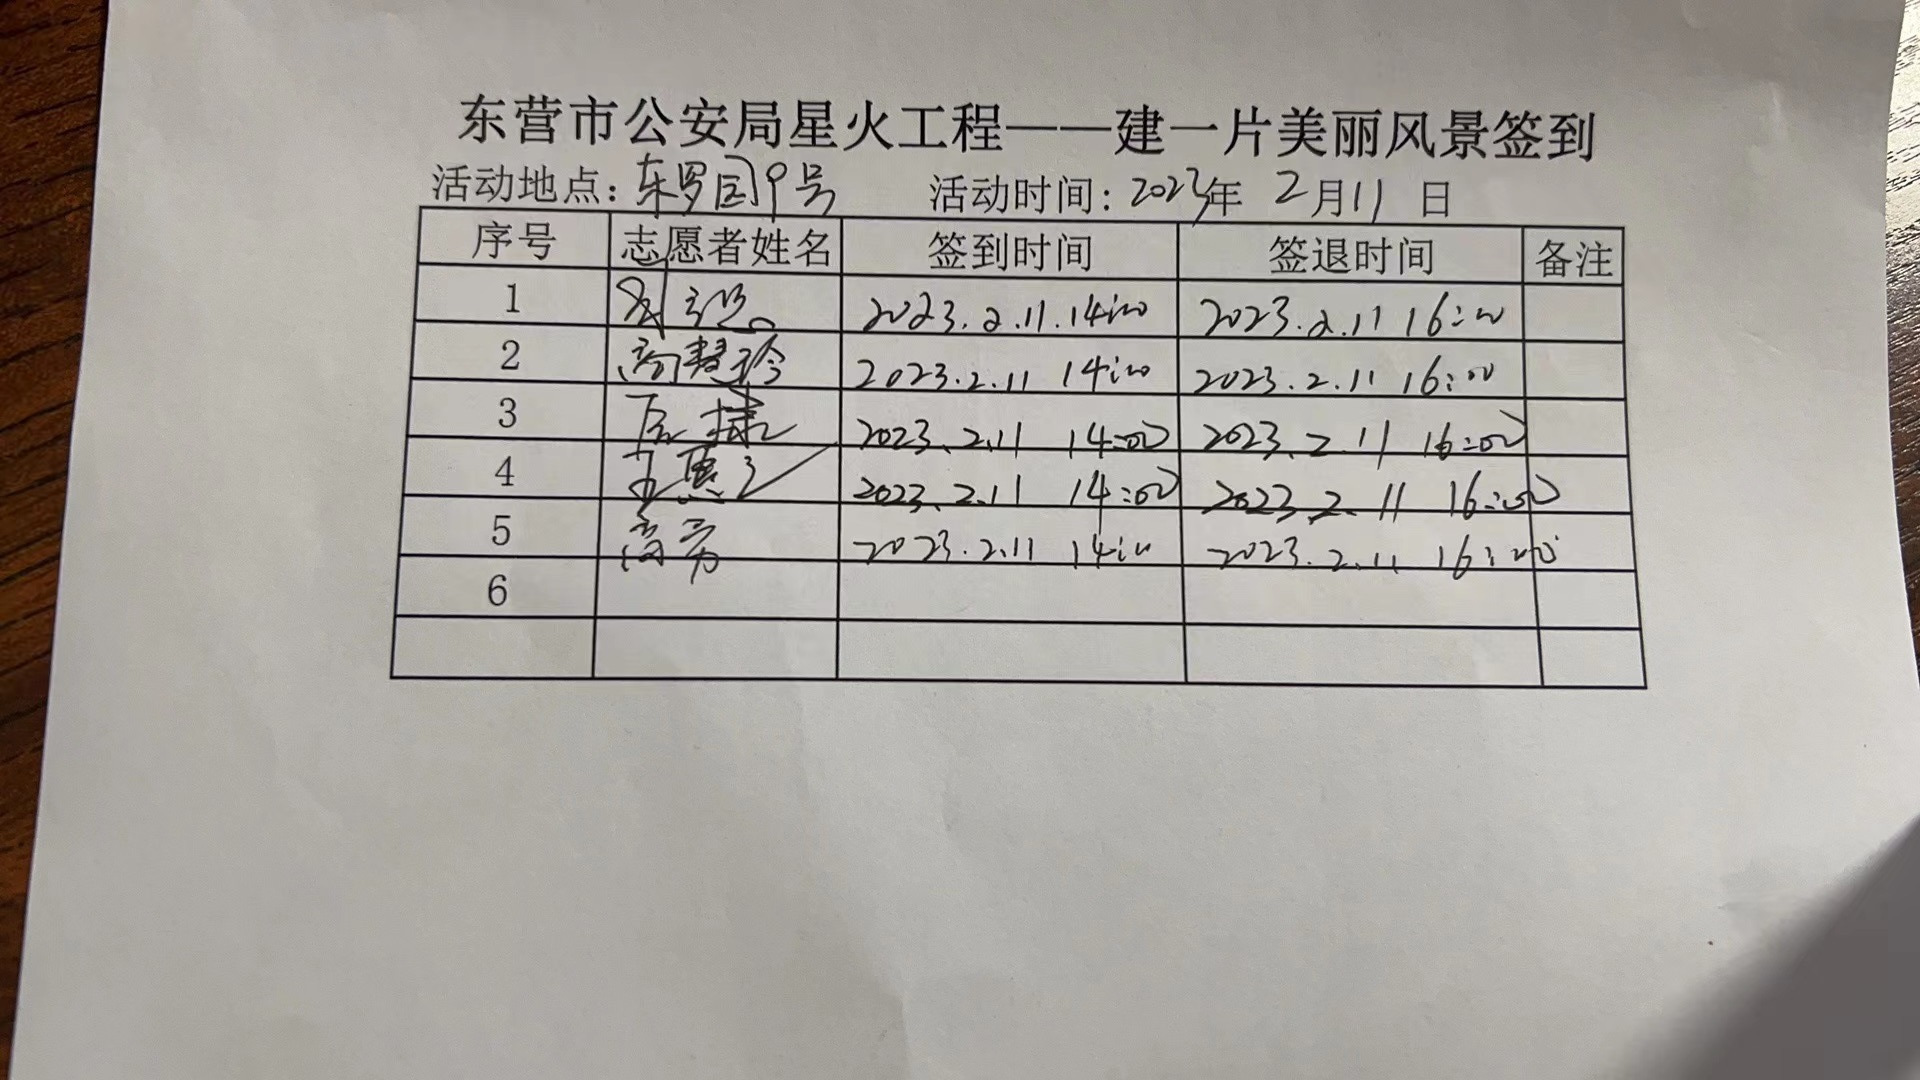 东营市公安局星火工程——建一片美丽风景签到
活动地点：东罗园9号 活动时间：2023年 2月11 日
序号 志愿者姓名 签到时间 签退时间 备注
1 2023.2.11.14:00 2023.2.11 16:00
2 高慧玲 2023.2.11 14:00 2023.2.11 16:00
3 2023.2.11 14:00 2023.2.11 16:00
4 2023.2.11 14:00 2023.2.11 16:00
5 高芳 2023.2.11 14:00 2023.2.11 16:00
6